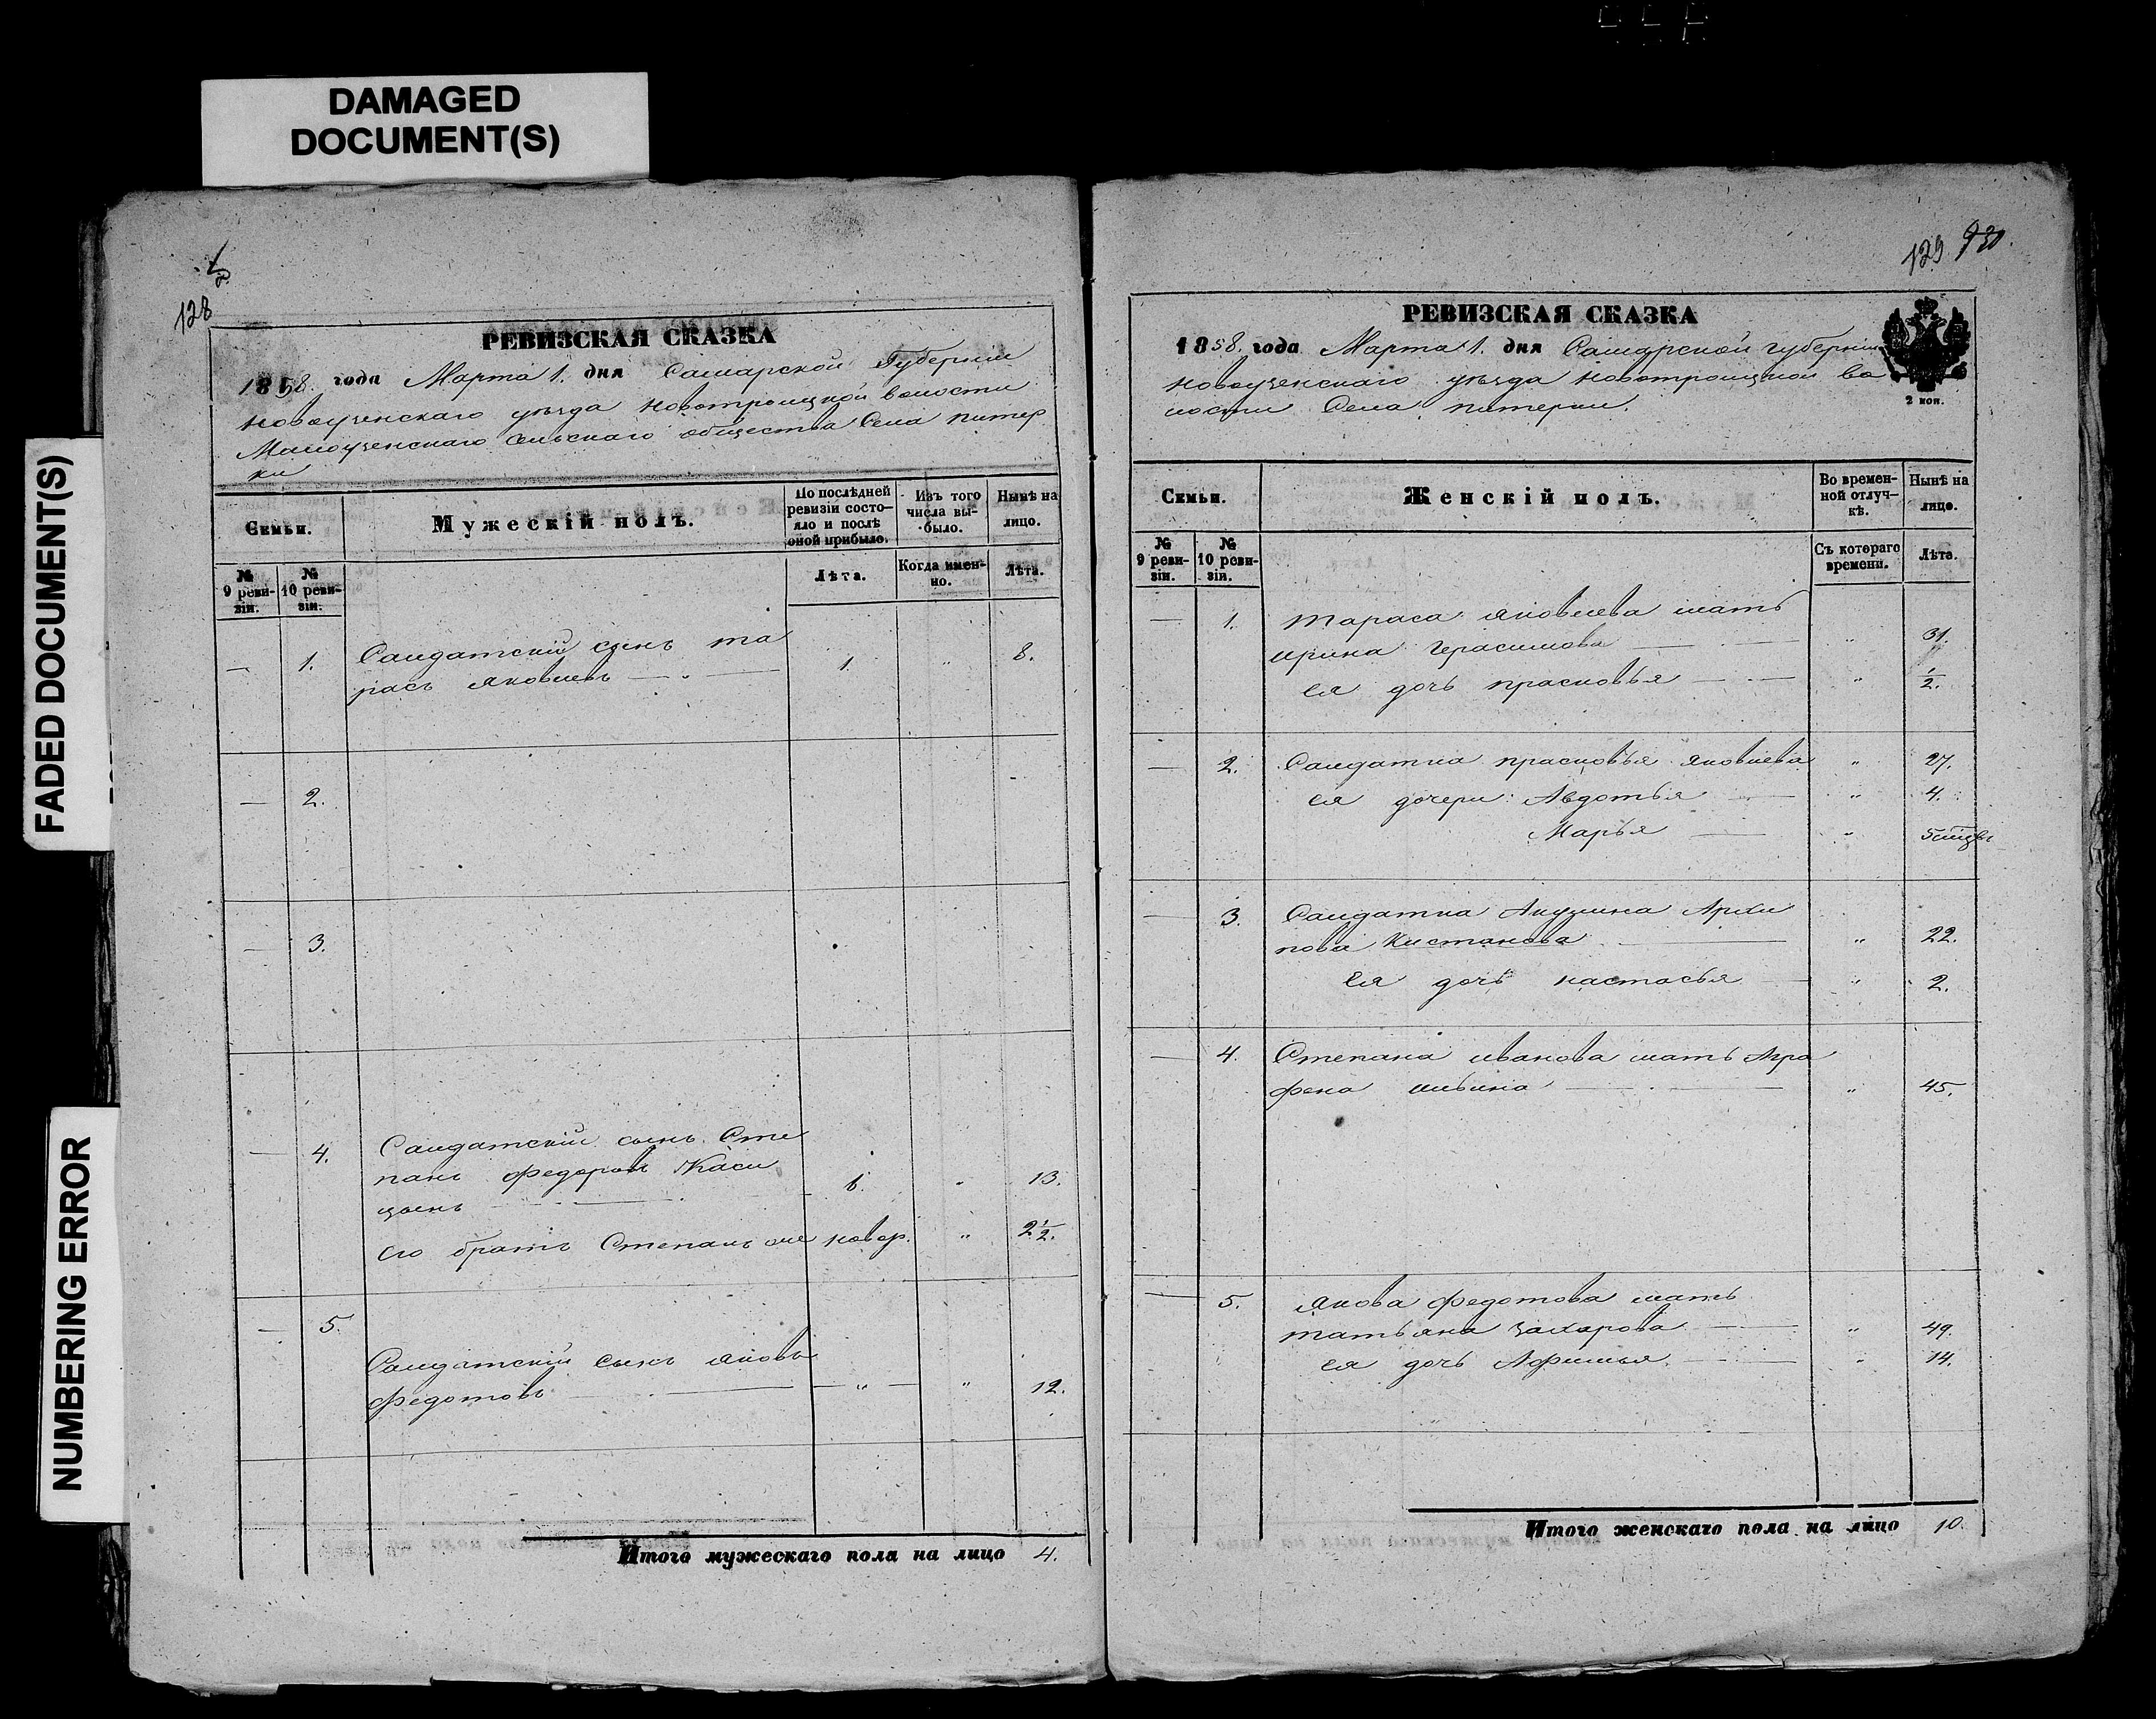 DAMAGED
DOCUMENT(S)
FADED DOCUMENT(S)
NUMBERING ERROR
128
РЕВИЗСКАЯ СКАЗКА
1858 года Марта 1. дня Самарской Губернии
Новоузенскаго уѣзда Новотроицкой волости
Малоузенскаго сельскаго общества Села Питер
ки
Семьи.
Мужескій полъ.
По послѣдней ревизіи состо-яло и послѣ оной прибыло.
Изъ того числа вы-было.
Нынѣ на лицо.
№ 9 реви-зіи.
№ 10 реви-зіи.
Лѣта.
Когда имен-но.
Лѣта.
— 1. Салдатский сынъ та
расъ Яковлевъ — 1. " 8.
— 2.
— 3.
— 4. Салдатский сынъ Сте
панъ Федоровъ
" 13.
его братъ Степанъ же новор. " 2 1/2.
— 5.
Салдатский сынъ Яковъ
Федотовъ — " " 12.
Итого мужескаго пола на лицо 4.
129
РЕВИЗСКАЯ СКАЗКА
1858. года Марта 1. дня Самарской губернии
Новоузенскаго уѣзда Новотроицкой во
лости Села Питерки.
2 коп.
Семьи.
Женскій полъ.
Во времен-ной отлуч-кѣ.
Нынѣ на лицо.
№ 9 реви-зіи.
№ 10 реви-зіи.
Съ котораго времени.
Лѣта.
— 1. Тараса Яковлева мать
Ирина Герасимова — " 31.
ея дочь Прасковья — " 1/2.
— 2. Салдатка Прасковья Яковлева " 27.
ея дочери: Авдотья — " 4.
Марья — "
— 3. Салдатка Акулина Архи
пова Кистанова — " 22.
ея дочь Настасья — " 2.
— 4. Степана Иванова мать Агра
фена Ильина — " 45.
— 5. Якова Федотова мать
Татьяна Захарова — " 49.
ея дочь Афимья. — " 14.
Итого женскаго пола на лицо 10.